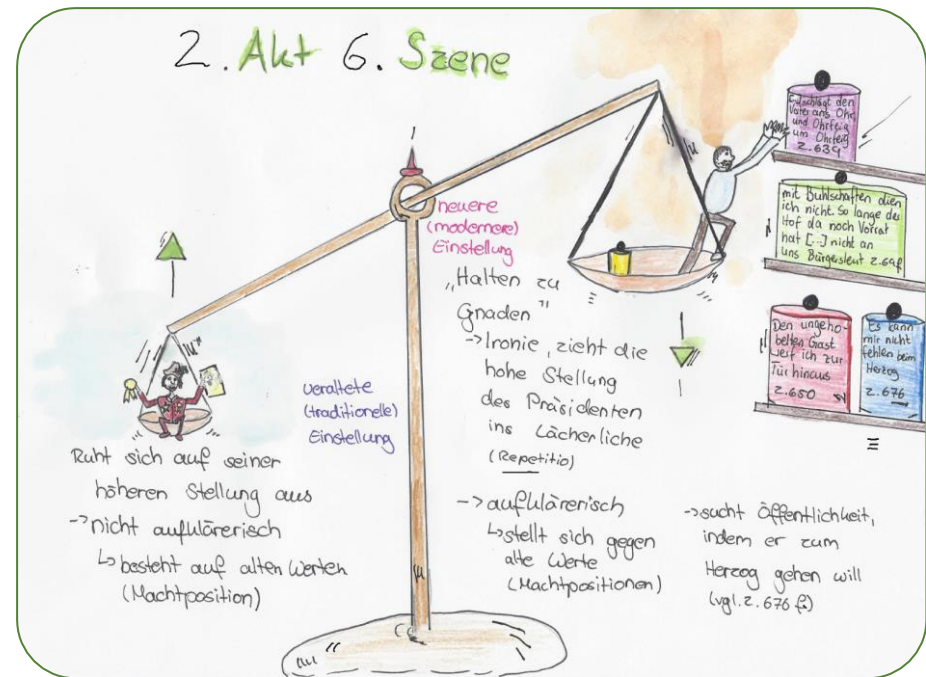 2. Akt 6. Szene
Ruht sich auf seiner
höheren Stellung aus
-> nicht aufklärerisch
↳ besteht auf alten Werten
(Machtposition)
veraltete
(traditionelle)
Einstellung
neuere
(modernere)
Einstellung
„Halten zu
Gnaden"
-> Ironie, zieht die
hohe Stellung
des Präsidenten
ins Lächerliche
(Repetitio)
-> aufklärerisch
↳ stellt sich gegen
alte Werte
(Machtpositionen)
den
Vater ans Ohr
und Ohrfeig
um Ohrfeig
Z. 639
mit Buhlschaften dien
ich nicht. So lange der
Hof da noch Vorrat
hat [...] nicht an
uns Bürgersleut Z. 64f
Den ungeho-
belten Gast
werf ich zur
Tür hinaus
Z. 650
Es kann
mir nicht
fehlen beim
Herzog
Z. 676
-> sucht Öffentlichkeit,
indem er zum
Herzog gehen will
(vgl. Z. 676 f.)